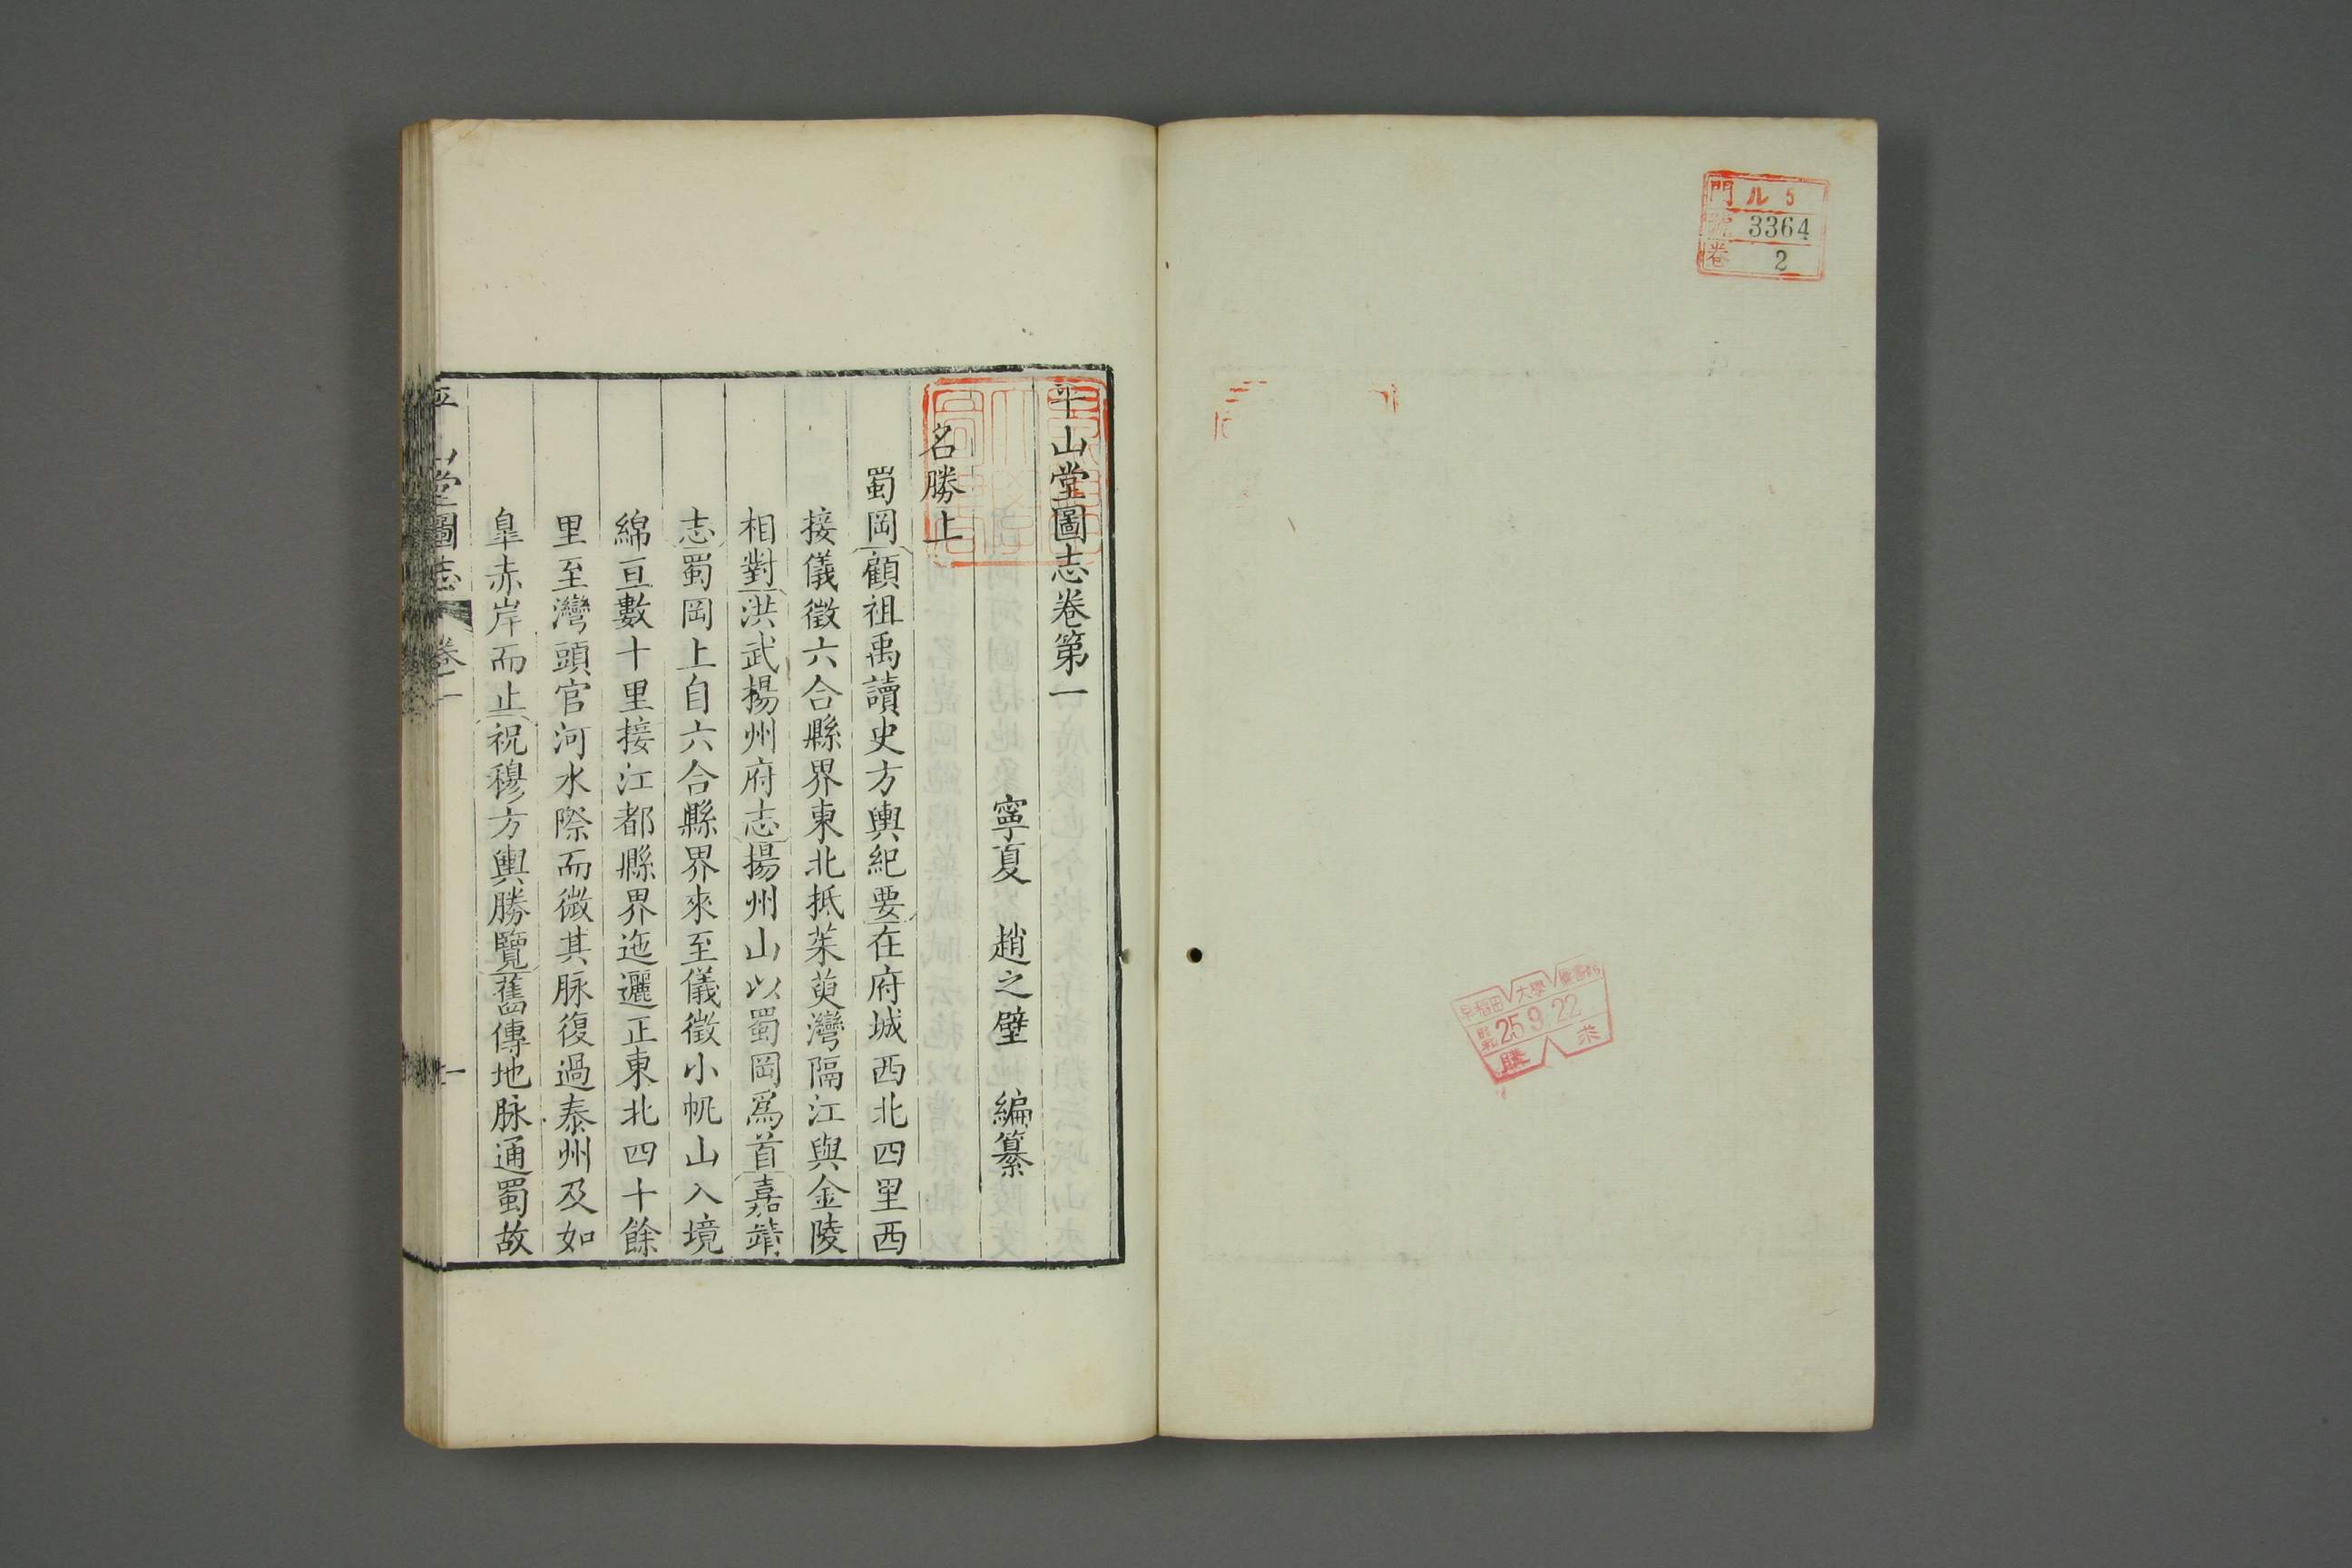 門 ル 5
號 3364
卷 2
早稲田大學圖書館
昭和 25 9 22
購 求
平山堂圖志卷第一
寧夏 趙之壁 編纂
名勝上
蜀岡顧祖禹讀史方輿紀要在府城西北四里西
接儀徵六合縣界東北抵茱萸灣隔江與金陵
相對洪武揚州府志揚州山以蜀岡爲首嘉靖
志蜀岡上自六合縣界來至儀徵小帆山入境
綿亘數十里接江都縣界迤邐正東北四十餘
里至灣頭官河水際而微其脉復過泰州及如
皐赤岸而止祝穆方輿勝覽舊傳地脉通蜀故
平山堂圖志 卷一 一